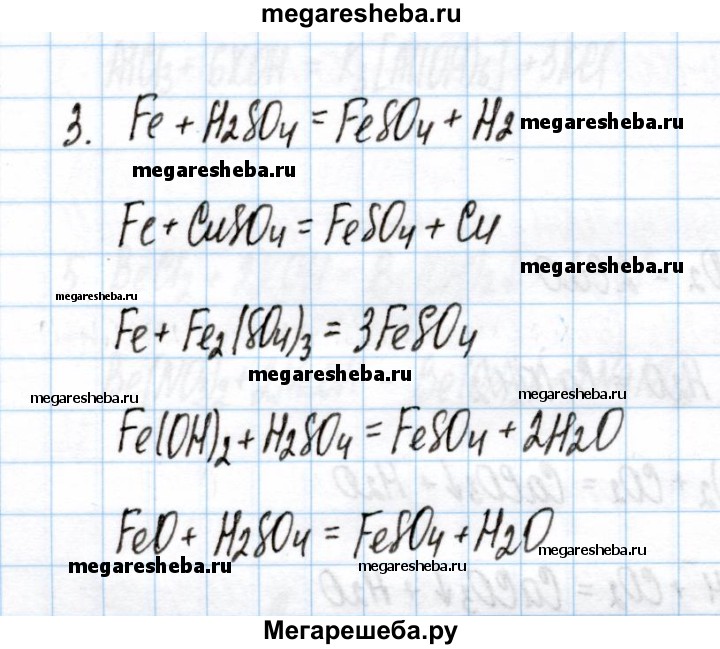 megaresheba.ru
3. Fe + H2SO4 = FeSO4 + H2 megaresheba.ru
megaresheba.ru
Fe + CuSO4 = FeSO4 + Cu
megaresheba.ru
megaresheba.ru
Fe + Fe2(SO4)3 = 3FeSO4
megaresheba.ru
megaresheba.ru megaresheba.ru
Fe(OH)2 + H2SO4 = FeSO4 + 2H2O
FeO + H2SO4 = FeSO4 + H2O
megaresheba.ru megaresheba.ru megaresheba.ru
Мегарешеба.ру